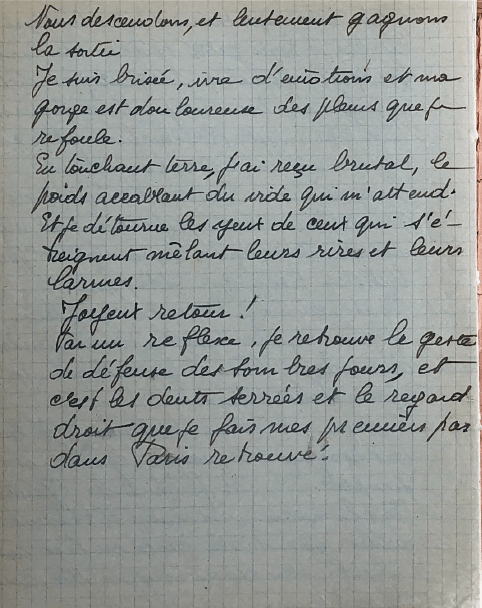 Nous descendons, et lentement gagnons
la sortie
Je suis brisée, ivre d'émotions et ma
gorge est douloureuse des pleurs que je
refoule.
En touchant terre, j'ai reçu brutal, le
poids accablant du vide qui m'attend.
Et je détourne les yeux de ceux qui s'é-
treignent mêlant leurs rires et leurs
larmes.
Joyeux retour !
Par un reflexe, je retrouve le geste
de défense des sombres jours, et
c'est les dents serrées et le regard
droit que je fais mes premiers pas
dans Paris retrouvé.